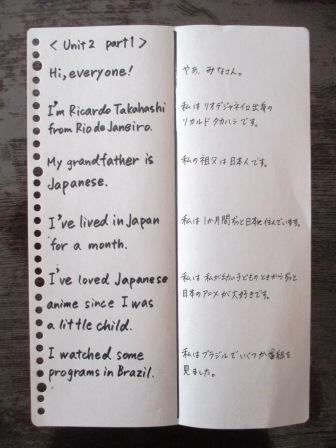 < Unit 2 part1 >
Hi, everyone!
I'm Ricardo Takahashi
from Rio de Janeiro.
My grandfather is
Japanese.
I've lived in Japan
for a month.
I've loved Japanese
anime since I was
a little child.
I watched some
programs in Brazil.
やあ、みなさん。
私はリオデジャネイロ出身の
リカルド タカハシです。
私の祖父は日本人です。
私は1か月間ずっと日本に住んでいます。
私は 私が小さい子どものときからずっと
日本のアニメが大好きです。
私はブラジルでいくつか番組を
見ました。